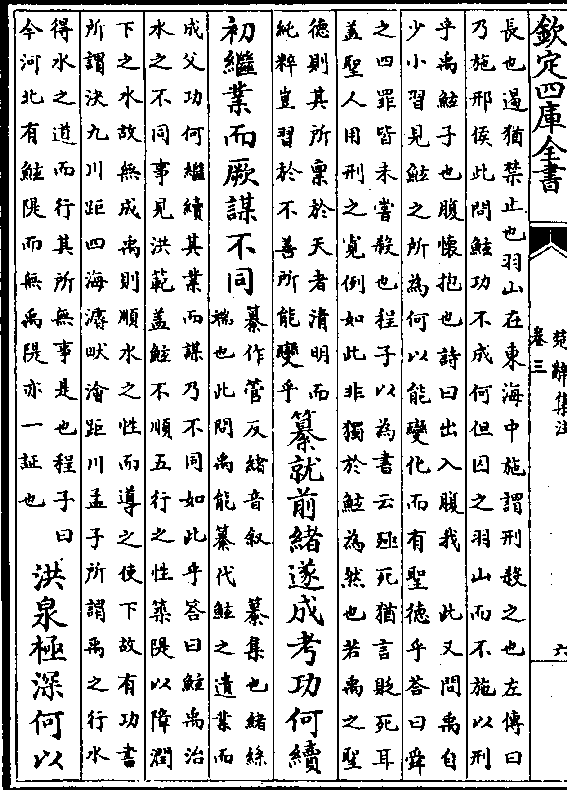 欽定四庫全書
楚辭集注
卷三
六
長也遏猶禁止也羽山在東海中施謂刑殺之也左傳曰
乃施邢侯此問鮌功不成何但囚之羽山而不施以刑
乎禹鮌子也腹懷抱也詩曰出入腹我 此又問禹自
少小習見鮌之所為何以能變化而有聖德乎答曰舜
之四罪皆未嘗殺也程子以為書云殛死猶言貶死耳
盖聖人用刑之寛例如此非獨於鮌為然也若禹之聖
德則其所禀於天者清明而
純粹豈習於不善所能變乎
纂就前緒遂成考功何續
初繼業而厥謀不同
纂作管反緒音叙 纂集也緒絲
端也此問禹能纂代鮌之遺業而
成父功何繼續其業而謀乃不同如此乎答曰鮌禹治
水之不同事見洪範盖鮌不順五行之性築隄以障潤
下之水故無成禹則順水之性而導之使下故有功書
所謂決九川距四海濬畎澮距川孟子所謂禹之行水
得水之道而行其所無事是也程子曰
今河北有鮌隄而無禹隄亦一証也
洪泉極深何以